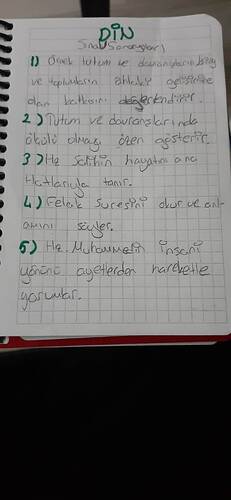 DİN
Sınav Senaryoları
1) Örnek tutum ve davranışların birey
ve toplumların ahlaki gelişimine
olan katkısını değerlendirir.
2) Tutum ve davranışlarında
ölçülü olmaya özen gösterir.
3) Hz. Salih'in hayatını ana
hatlarıyla tanır.
4) Felak Suresini okur ve anl-
amını söyler.
5) Hz. Muhammedin insani
yönünü ayetlerden hareketle
yorumlar.